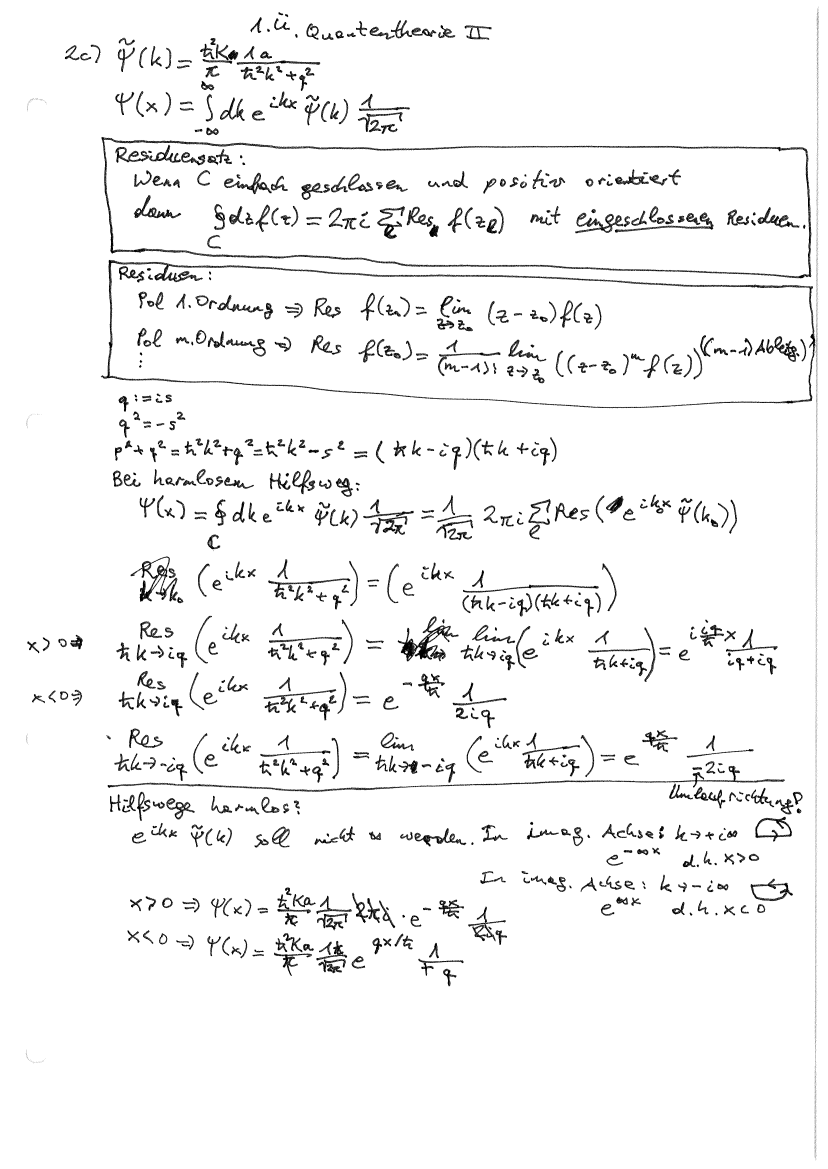 1. Ü. Quantentheorie II
2c) ψ̃(k) = ħ²Ka/π · 1/(ħ²k²+q²)
ψ(x) = ∫_{-∞}^{∞} dk e^{ikx} ψ̃(k) 1/√(2π)
Residuensatz:
Wenn C einfach geschlossen und positiv orientiert
dann ∮_C dz f(z) = 2πi ∑_l Res f(z_l) mit eingeschlossenen Residuen.
Residuen:
Pol 1. Ordnung ⇒ Res f(z₀) = lim_{z→z₀} (z-z₀) f(z)
Pol m. Ordnung ⇒ Res f(z₀) = 1/(m-1)! lim_{z→z₀} ((z-z₀)^m f(z))^{((m-1) Ableitg.)}
⋮
q := is
q² = -s²
p²+q² = ħ²k²+q² = ħ²k²-s² = (ħk-iq)(ħk+iq)
Bei harmlosem Hilfsweg:
ψ(x) = ∮_C dk e^{ikx} ψ̃(k) 1/√(2π) = 1/√(2π) 2πi ∑_l Res(e^{ik₀x} ψ̃(k₀))
(e^{ikx} 1/(ħ²k²+q²)) = (e^{ikx} 1/((ħk-iq)(ħk+iq)))
x>0 ⇒ Res_{ħk→iq} (e^{ikx} 1/(ħ²k²+q²)) = lim_{ħk→iq} (e^{ikx} 1/(ħk+iq)) = e^{i iq/ħ x} 1/(iq+iq)
x<0 ⇒ Res_{ħk→iq} (e^{ikx} 1/(ħ²k²+q²)) = e^{-qx/ħ} 1/(2iq)
Res_{ħk→-iq} (e^{ikx} 1/(ħ²k²+q²)) = lim_{ħk→-iq} (e^{ikx} 1/(ħk+iq)) = e^{qx/ħ} 1/(-2iq)
Umlaufrichtung?
Hilfswege harmlos?
e^{ikx} ψ̃(k) soll nicht ∞ werden. In imag. Achse: k→+i∞
e^{-∞x} d.h. x>0
In imag. Achse: k→-i∞
e^{∞x} d.h. x<0
x>0 ⇒ ψ(x) = ħ²Ka/π 1/√(2π) 2πi · e^{-qx/ħ} 1/(2iq)
x<0 ⇒ ψ(x) = ħ²Ka/π 1/√(2π) e^{qx/ħ} 1/(∓q)